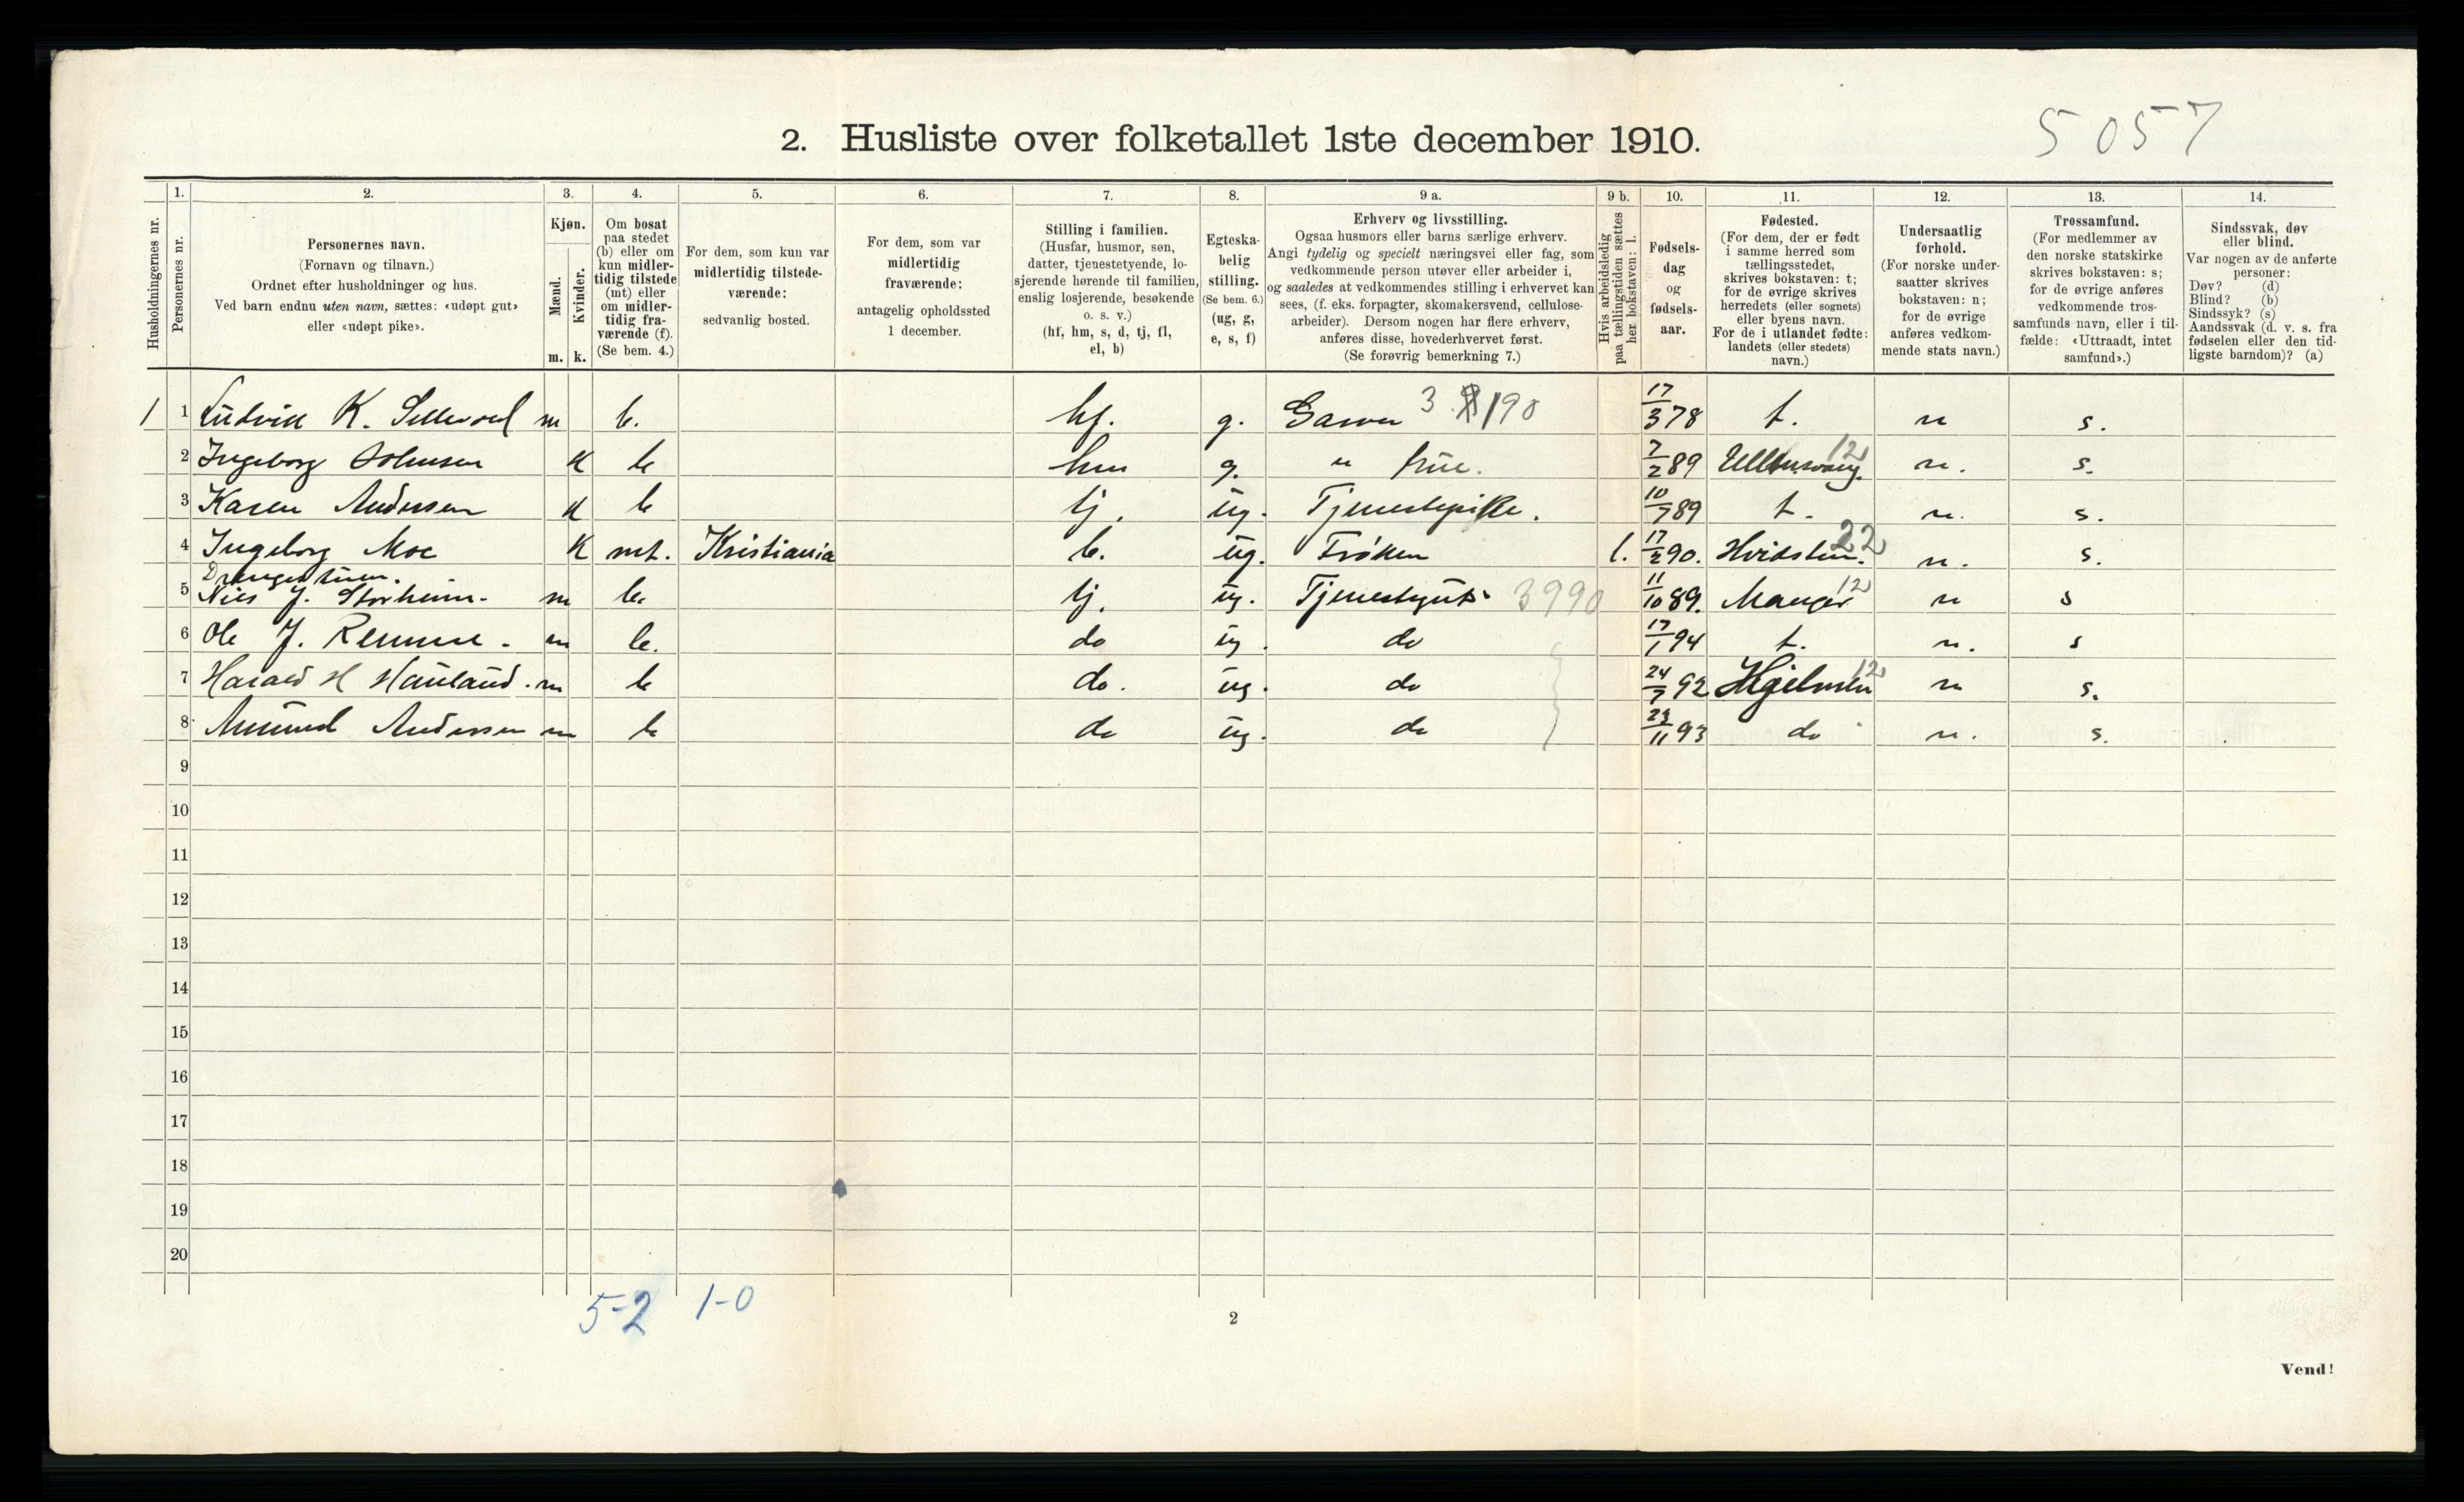 5057
2. Husliste over folketallet 1ste december 1910.
Husholdningernes nr.
1.
Personernes nr.
2.
Personernes navn.
(Fornavn og tilnavn.)
Ordnet efter husholdninger og hus.
Ved barn endnu uten navn, sættes: «udøpt gut»
eller «udøpt pike».
3.
Kjøn.
Mænd.
Kvinder.
m. k.
4.
Om bosat
paa stedet
(b) eller om
kun midler-
tidig tilstede
(mt) eller
om midler-
tidig fra-
værende (f).
(Se bem. 4.)
5.
For dem, som kun var
midlertidig tilstede-
værende:
sedvanlig bosted.
6.
For dem, som var
midlertidig
fraværende:
antagelig opholdssted
1 december.
7.
Stilling i familien.
(Husfar, husmor, søn,
datter, tjenestetyende, lo-
sjerende hørende til familien,
enslig losjerende, besøkende
o. s. v.)
(hf, hm, s, d, tj, fl,
el, b)
8.
Egteska-
belig
stilling.
(Se bem. 6.)
(ug, g,
e, s, f)
9 a.
Erhverv og livsstilling.
Ogsaa husmors eller barns særlige erhverv.
Angi tydelig og specielt næringsvei eller fag, som
vedkommende person utøver eller arbeider i,
og saaledes at vedkommendes stilling i erhvervet kan
sees, (f. eks. forpagter, skomakersvend, cellulose-
arbeider). Dersom nogen har flere erhverv,
anføres disse, hovederhvervet først.
(Se forøvrig bemerkning 7.)
9 b.
Hvis arbeidsledig
paa tællingstiden sættes
her bokstaven: l.
10.
Fødsels-
dag
og
fødsels-
aar.
11.
Fødested.
(For dem, der er født
i samme herred som
tællingsstedet,
skrives bokstaven: t;
for de øvrige skrives
herredets (eller sognets)
eller byens navn.
For de i utlandet fødte:
landets (eller stedets)
navn.)
12.
Undersaatlig
forhold.
(For norske under-
saatter skrives
bokstaven: n;
for de øvrige
anføres vedkom-
mende stats navn.)
13.
Trossamfund.
(For medlemmer av
den norske statskirke
skrives bokstaven: s;
for de øvrige anføres
vedkommende tros-
samfunds navn, eller i til-
fælde: «Uttraadt, intet
samfund».)
14.
Sindssvak, døv
eller blind.
Var nogen av de anførte
personer:
Døv? (d)
Blind? (b)
Sindssyk? (s)
Aandssvak (d. v. s. fra
fødselen eller den tid-
ligste barndom)? (a)
1 1 Ludvik K. m b. hf. g. 3 190 17/3 78 t. n s.
2 Ingeborg Johnsen K b hm g. " frue. 7/2 89 Ullensvang. 12 n. s.
3 Karen Andersen K b tj. ug. Tjenestepike. 10/7 89 t. n. s.
4 Ingeborg Moe K mt. Kristiania b. ug. Frøken l. 17/2 90. Hvidsten. 22 n. s.
5 Nils J. Storheim. m b. tj. ug. Tjenestegut 3990 11/10 89. Manger 12 n s
6 Ole J. m b. do ug. do 17/1 94 t. n. s
7 Harald H Hauland. m b do. ug. do 24/7 92 Hjelmen 12 n s.
8 Amund Andersen m b do ug. do 11 93 do n. s.
9
10
11
12
13
14
15
16
17
18
19
20
5-2 1-0
2
Vend!